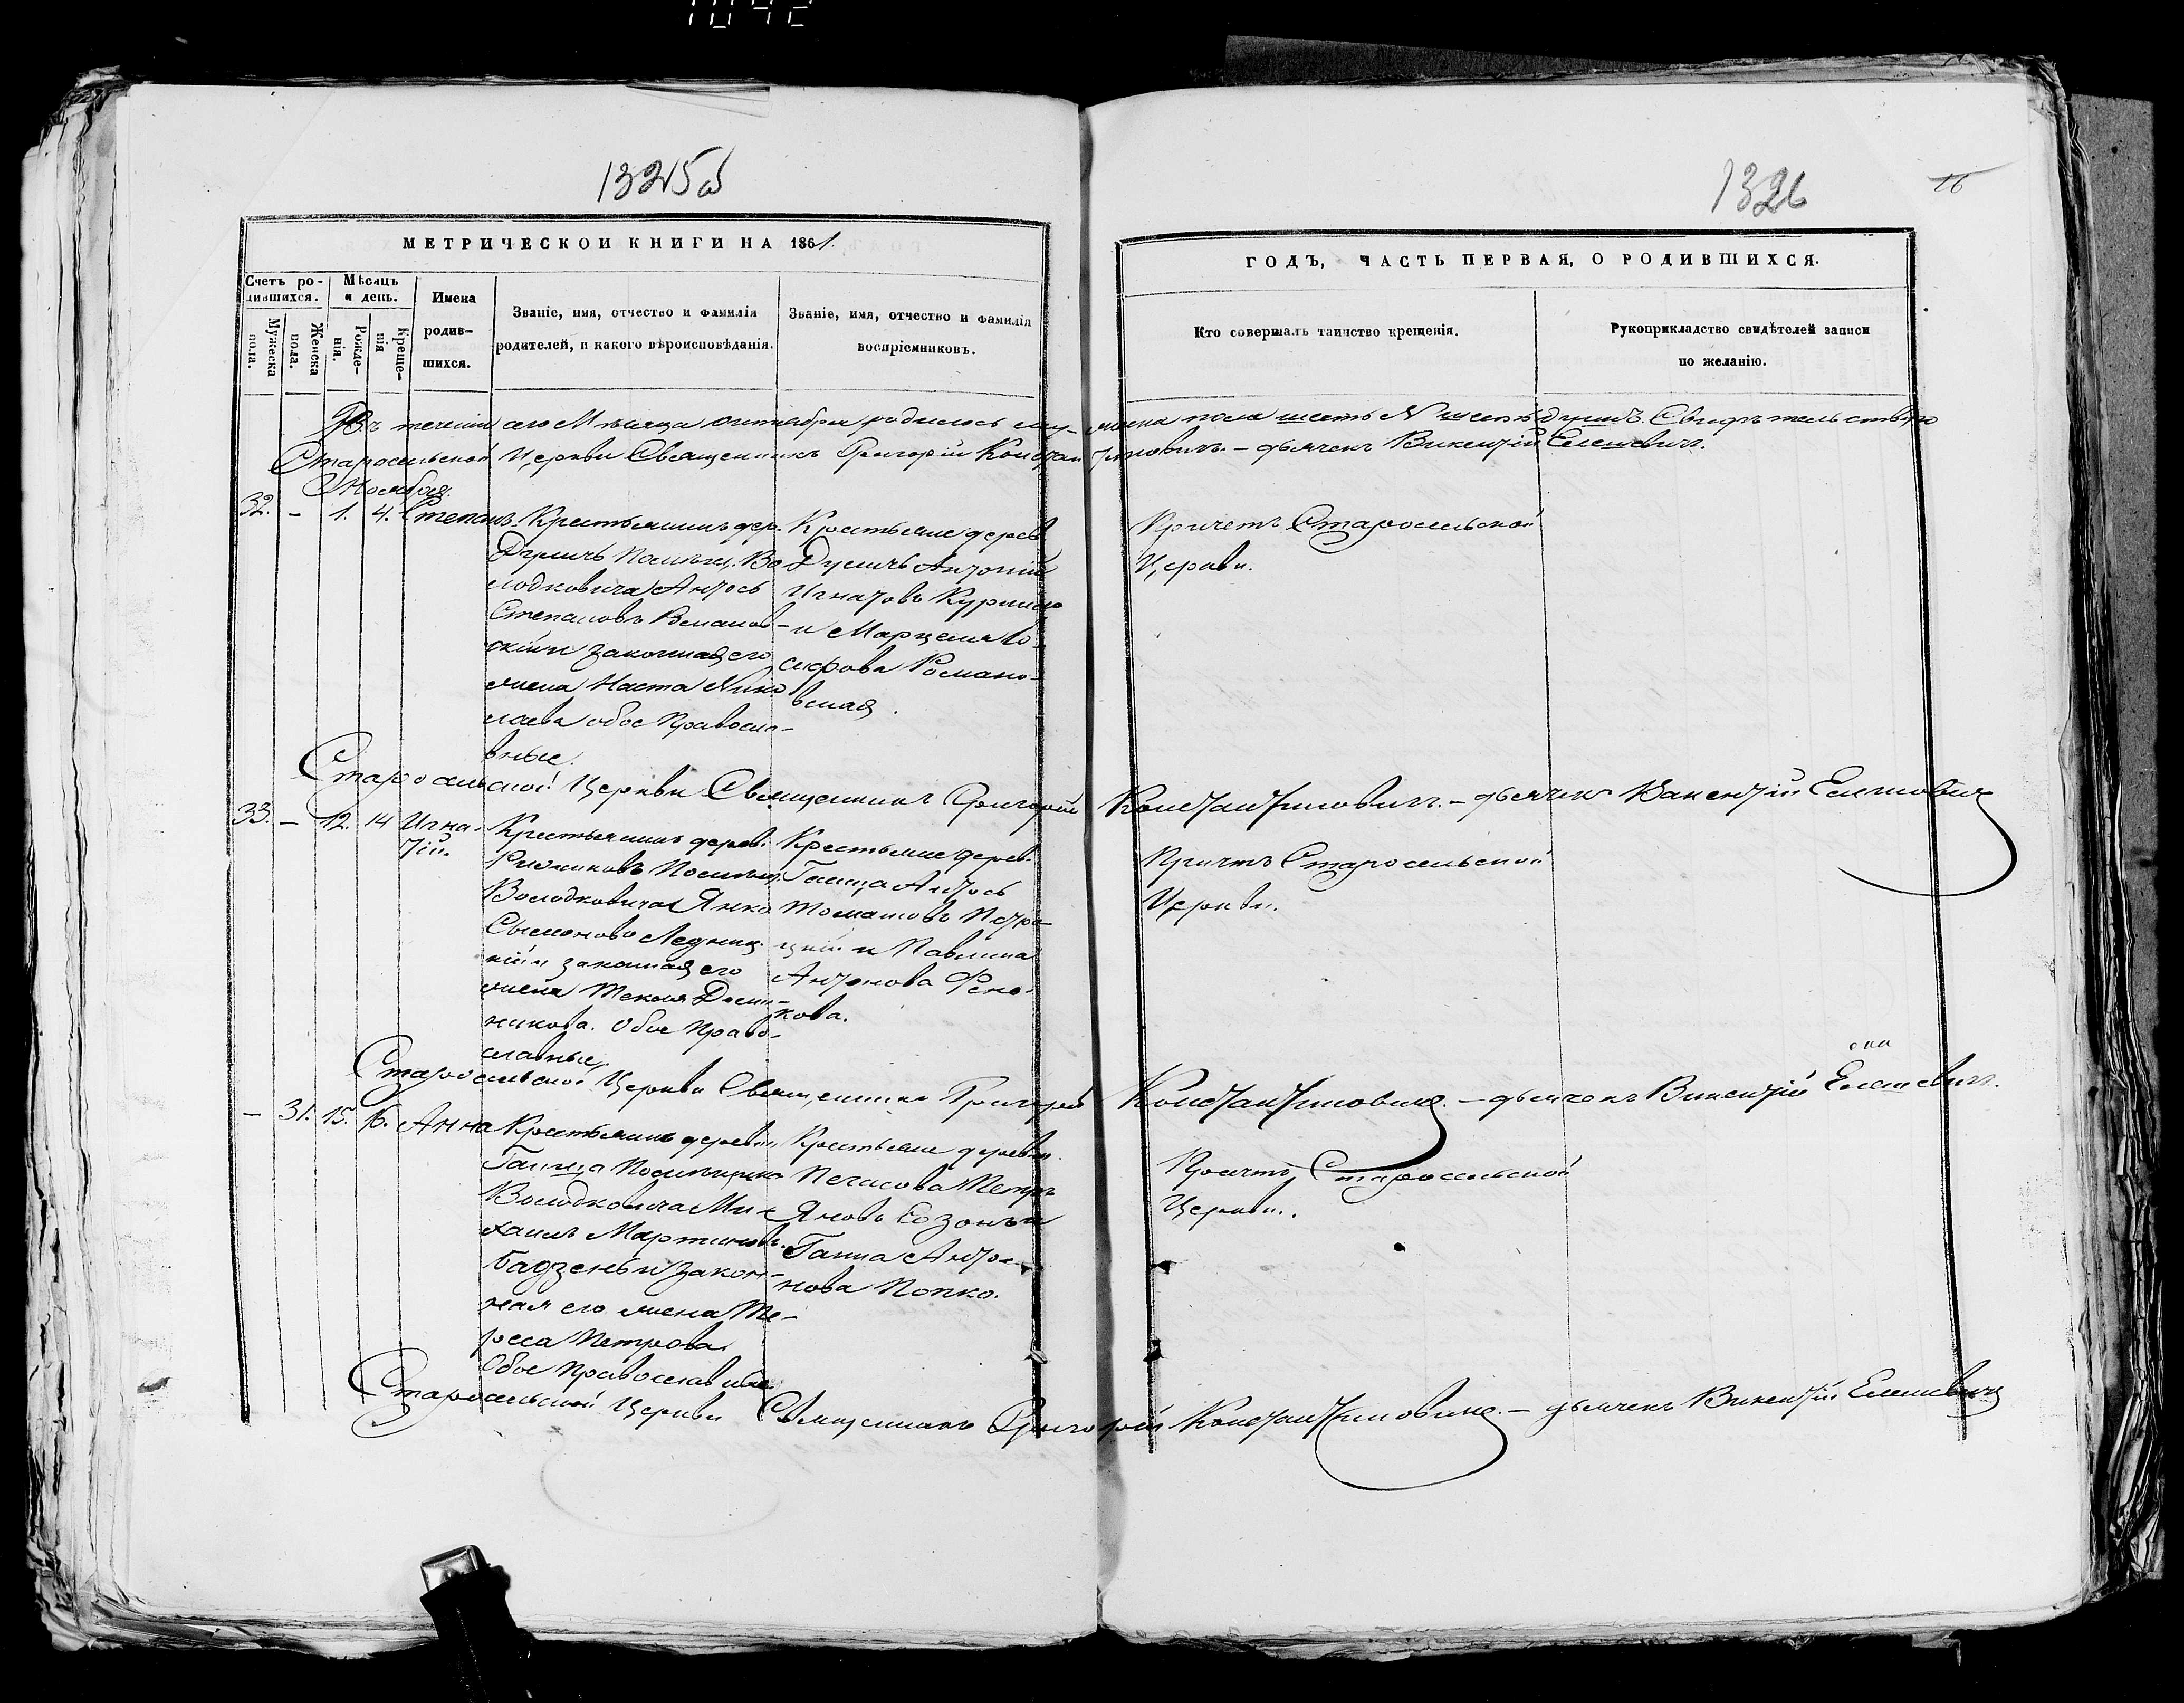 1042
1325об
1326
16
МЕТРИЧЕСКОЙ КНИГИ НА 1861.
ГОДЪ, ЧАСТЬ ПЕРВАЯ, О РОДИВШИХСЯ.
Счетъ родившихся.
Мѣсяцъ и день.
Мужеска пола.
Женска пола.
Рожденія.
Крещенія
Имена родившихся.
Званіе, имя, отчество и фамилія
родителей, и какого вѣроисповѣданія.
Званіе, имя, отчество и фамилія
воспріемниковъ.
Кто совершалъ таинство крещенія.
Рукоприкладство свидѣтелей записи
по желанію.
Въ теченіи сего Мѣсяца октября родилось мужеска пола шесть душъ. Свидѣтельствую
Старосельской Церкви Священникъ Григорій Константиновичъ. – дьячекъ Викентій Елешевичъ.
Ноября.
32. – 1. 4. Степанъ.
Крестьянинъ дер.
Дуличъ Помѣщ. Во
лодковича Антось
Степановъ
скій и законная его
жена Наста Нико
лаева обое Правосла-
вные.
Крестьяне дерев.
Дуличъ Антоній
Игнатовъ
и Марцеля Ю
зефова Романо-
вская.
Причетъ Старосельской
Церкви.
Старосельской Церкви Священникъ Григорій Константиновичъ. – дьячекъ Викентій Елешевичъ
33. – 12. 14 Игна-
тій.
Крестьянинъ дерев.
Помѣщ.
Володковича Янко
Сымоновъ Ледниц
кій и законная его
жена Текля Доми-
никова. Обое Право-
славные.
Крестьяне дерев.
Гаища Антось
Томашовъ Петра
цкій и Павлина
Антонова Фено-
кова.
Причтъ Старосельской
Церкви.
Старосельской Церкви Священникъ Григорій Константиновичъ. – дьячекъ Викентій Елешевичъ.
– 31. 15. 16. Анна
Крестьянинъ деревни
Гаища Помѣщика
Володковича Ми-
хаилъ Мартиновъ
Бадзень и закон-
ная его жена Те-
реса Петрова.
Обое Православные.
Крестьяне деревни
Пегасова Петръ
Яновъ Козонъ и
Ганна Анто-
нова Попко.
Причтъ Старосельской
Церкви.
Старосельской Церкви Священникъ Григорій Константиновичъ. – дьячекъ Викентій Елешевичъ